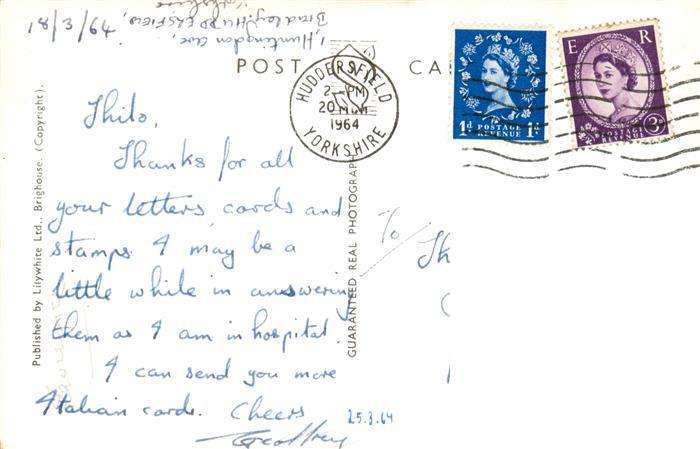 1, Huntingdon Ave,
Bradley, HUDDERSFIELD,
Yorkshire
49/3/81
POST CA
HUDDERSFIELD
2 - PM
20
1964
YORKSHIRE
1d POSTAGE 1d
REVENUE
E R
POSTAGE
REVENUE 3d
Published by Lilywhite Ltd., Brighouse. (Copyright).
GUARANTEED REAL PHOTOGRAPH
Thanks for all
your letters, cards and
stamps. I may be a
little while in answering
them as I am in hospital.
I can send you more
Italian cards. Cheers
Geoffrey
25.3.64
To